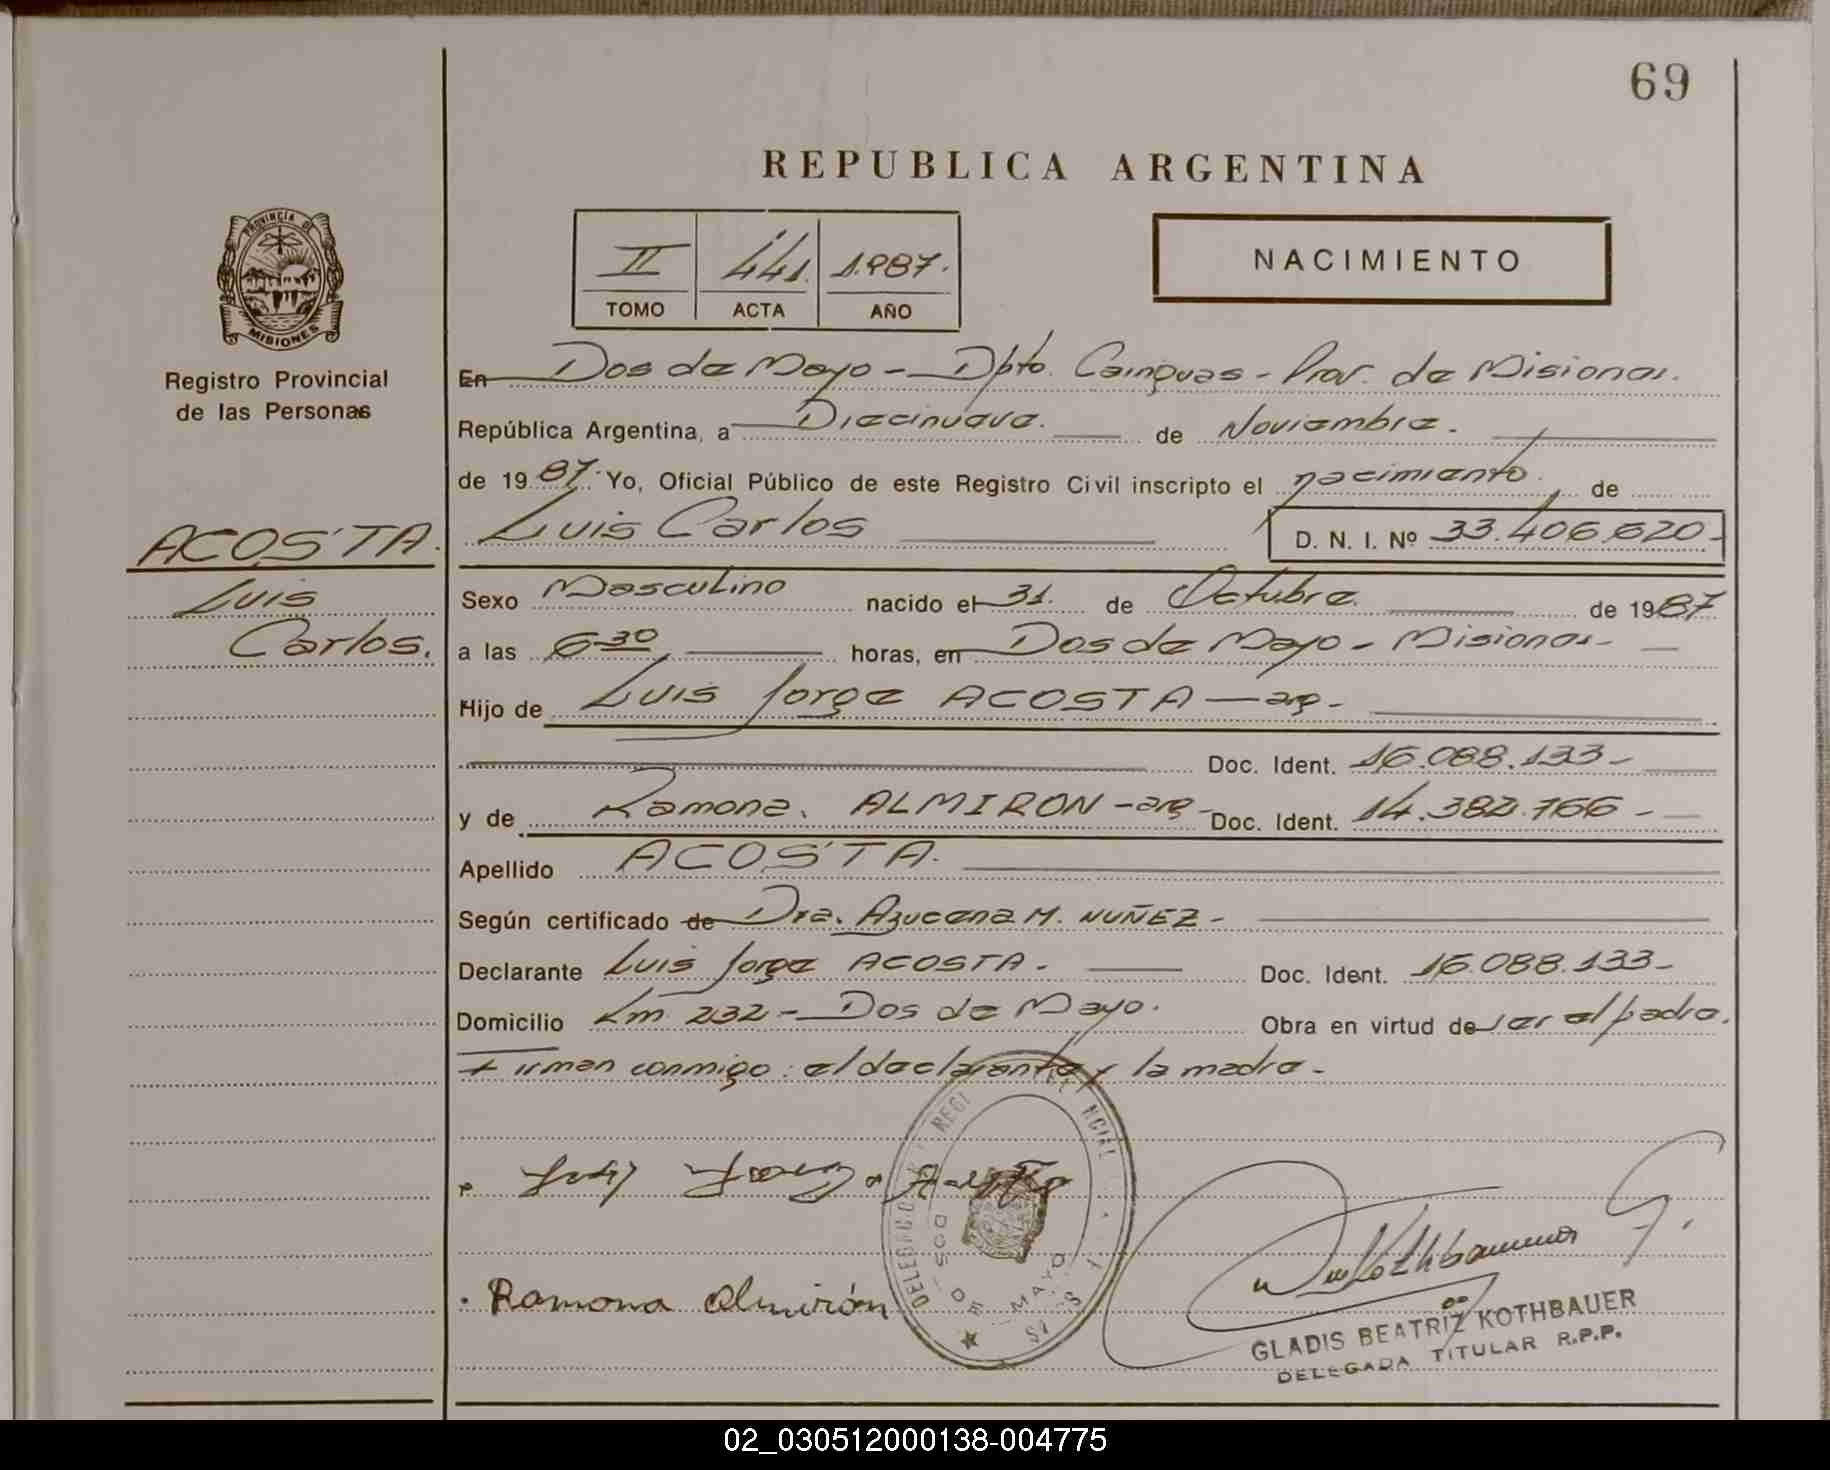 69
REPUBLICA ARGENTINA
PROVINCIA DE
MISIONES
Registro Provincial
de las Personas
II 441. 1.987.
TOMO ACTA AÑO
NACIMIENTO
En Dos de Mayo - Dpto. Cainguas - Prov. de Misiones.
República Argentina, a Diecinueve. de Noviembre.
de 1987. Yo, Oficial Público de este Registro Civil inscripto el nacimiento. de
ACOSTA. Luis Carlos D. N. I. Nº 33.406.620-
Luis Sexo Masculino nacido el 31. de Octubre. de 1987
Carlos. a las 6 30 horas, en Dos de Mayo - Misiones-
Hijo de Luis Jorge ACOSTA - arg-
Doc. Ident. 16.088.133-
y de Ramona. ALMIRON - arg- Doc. Ident. 14.382.766-
Apellido ACOSTA.
Según certificado de Dra. Azucena M. NUÑEZ-
Declarante Luis Jorge ACOSTA- Doc. Ident. 16.088.133-
Domicilio Km 232 - Dos de Mayo. Obra en virtud de ser el padre.
Firman conmigo: el declarante y la madre-
DOS DE MAYO
Ramona Almirón
GLADIS BEATRIZ KOTHBAUER
DELEGADA TITULAR R.P.P.
02_030512000138-004775